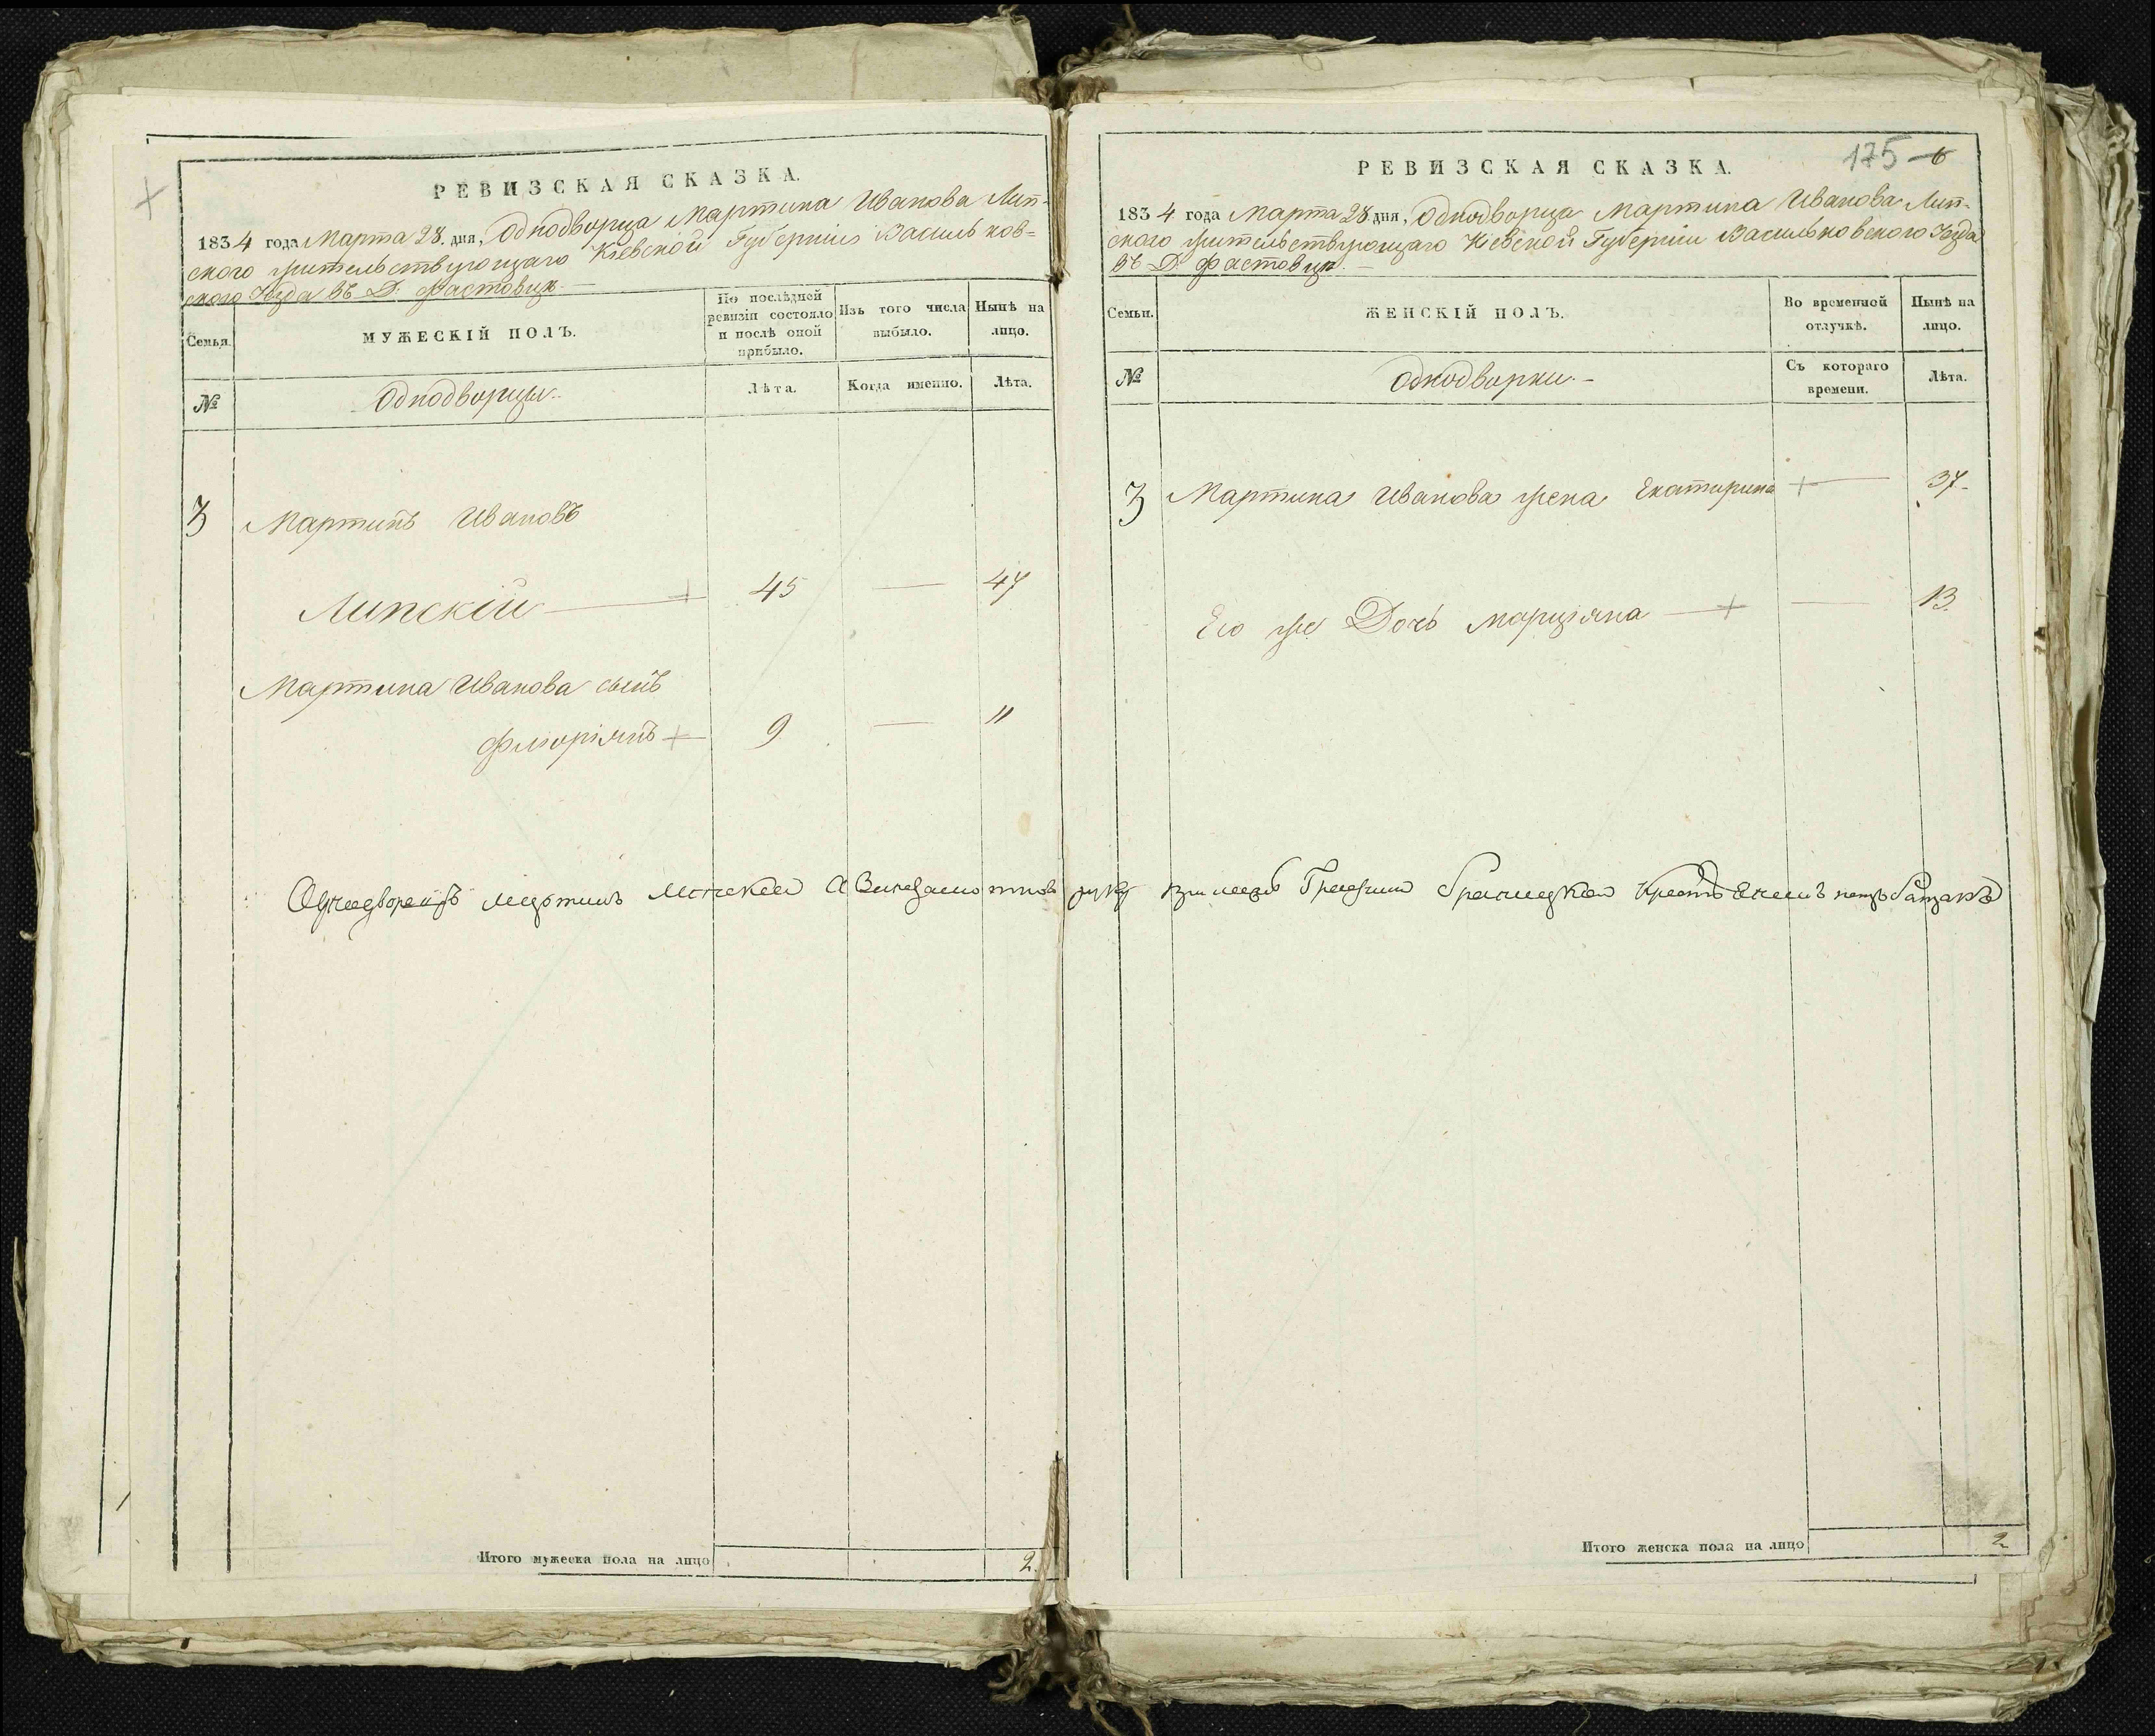 РЕВИЗСКАЯ СКАЗКА.
1834 года Марта 28. дня, Однодворца Мартина Иванова Лип-
ского жительствующаго Кіевской Губерніи Васильков=
ского Уезда въ Д. Фастовце.
Семья.
МУЖЕСКІЙ ПОЛЪ.
По послѣдней
ревизіи состояло
и послѣ оной
прибыло.
Изъ того числа
выбыло.
Нынѣ на
лицо.
№
Однодворцы.
Лѣта.
Когда именно.
Лѣта.
3 Мартинъ Ивановъ
Липскій 45 — 47
Мартина Иванова сынъ
Флоріянъ 9 — 11
Итого мужеска пола на лицо 2.
175
РЕВИЗСКАЯ СКАЗКА.
1834 года Марта 28 дня, Однодворца Мартина Иванова Лип-
ского жительствующаго Кіевской Губерніи Васильковского Уезда
въ Д. Фастовце. —
Семьи.
ЖЕНСКІЙ ПОЛЪ.
Во временной
отлучкѣ.
Нынѣ на
лицо.
№
Однодворки. -
Съ котораго
времени.
Лѣта.
3 Мартина Иванова жена Екатирина — 37
Его же Дочь Марціяна — 13.
Однодворецъ Мартинъ Липскей а вместо руку
Итого женска пола на лицо 2